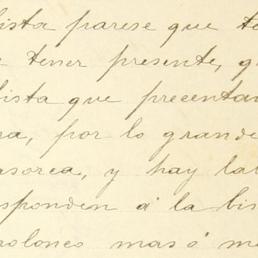 lista parese que to
a tener presente, q
lista que precenta
ra, por lo grande
asorea, y hay la
sponden á la bis
olones mas ó m